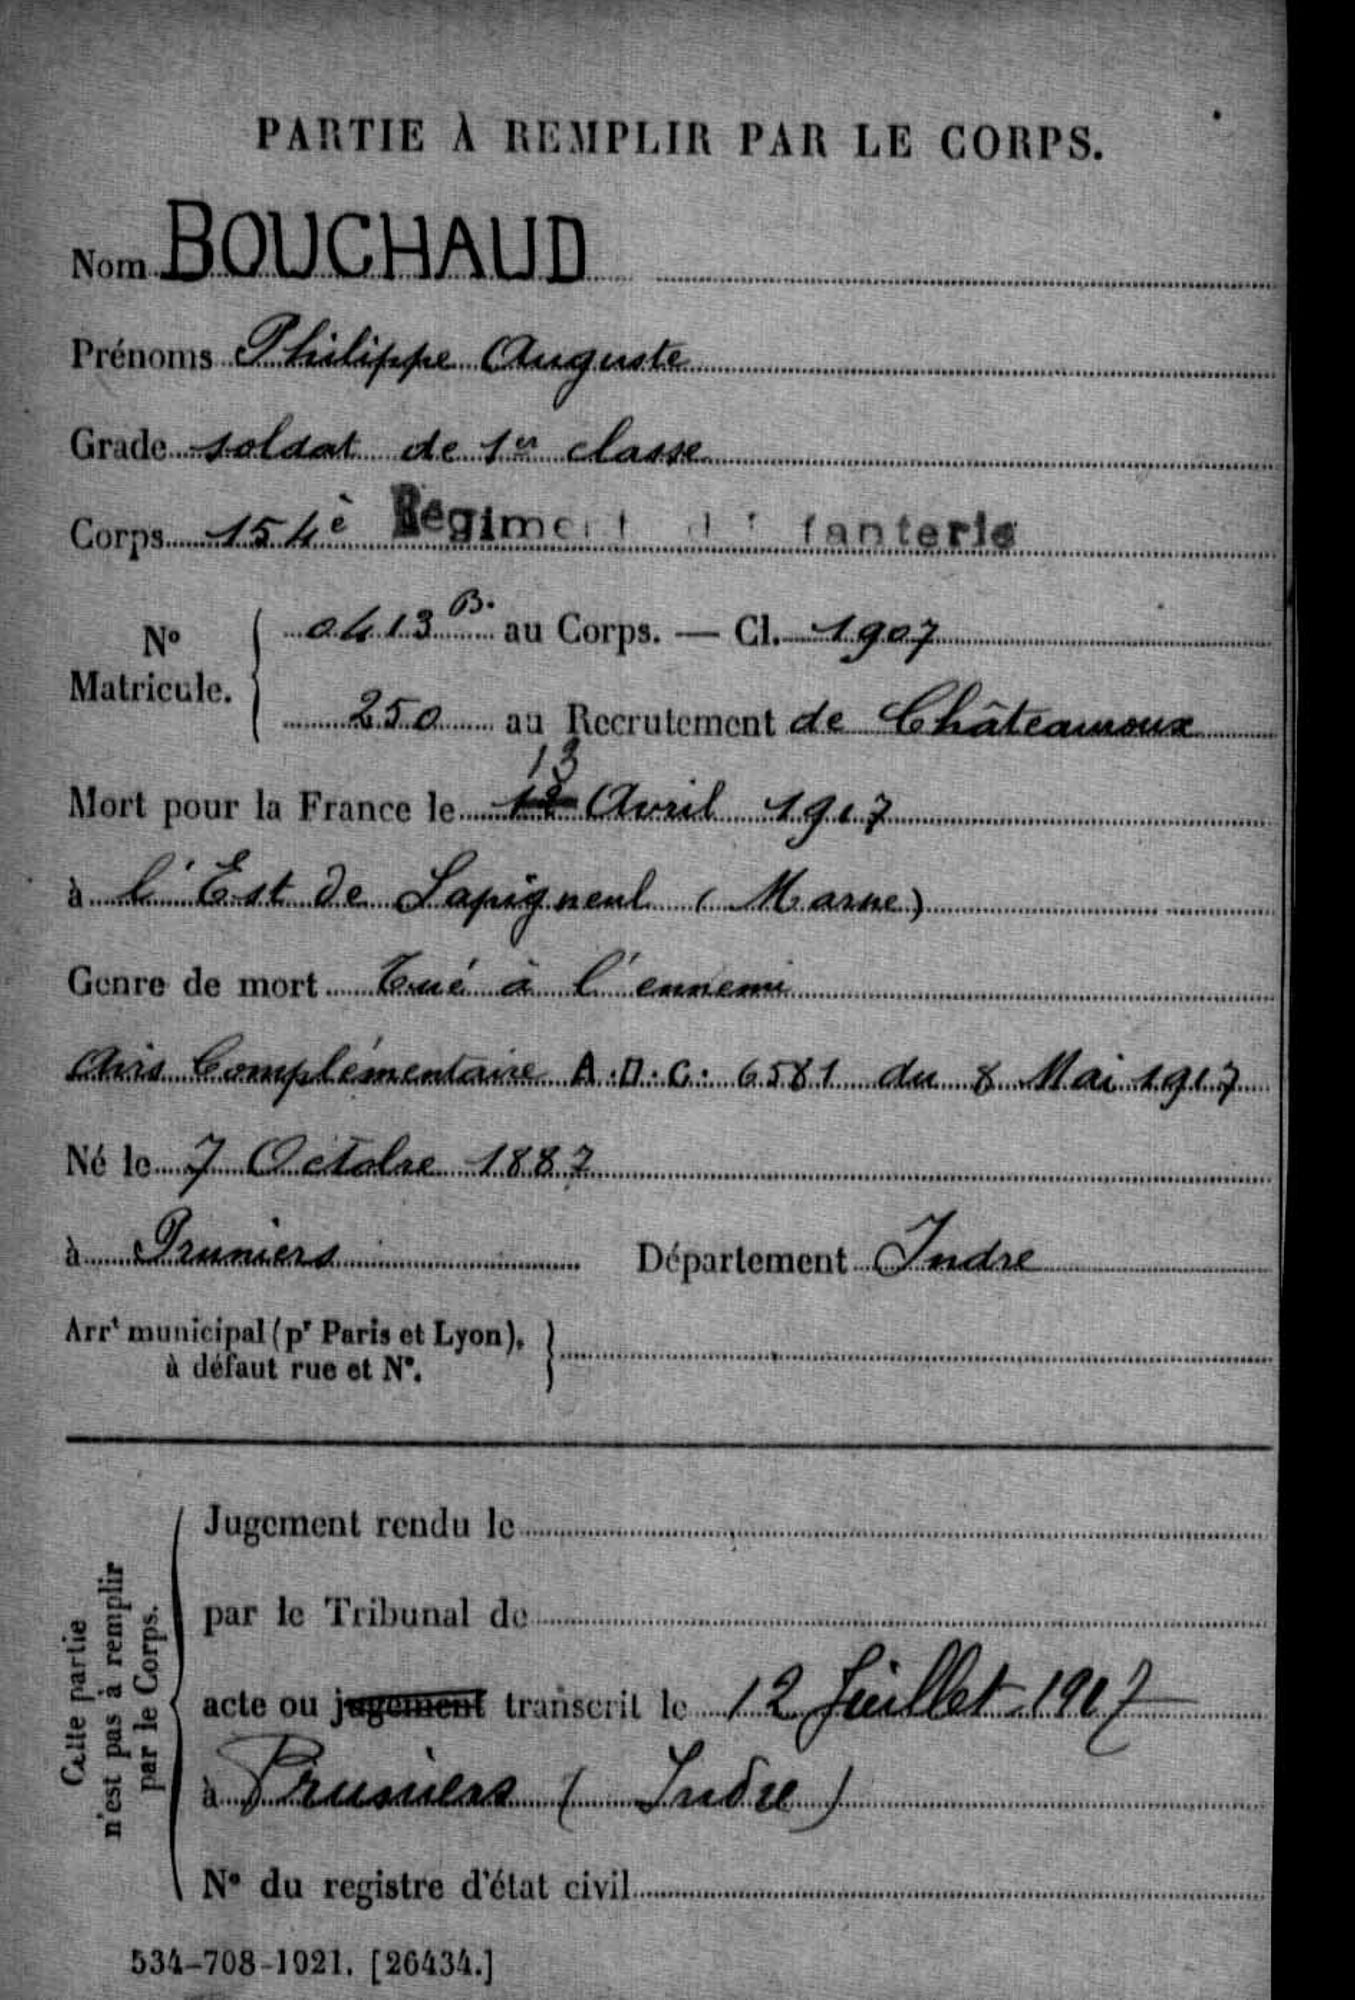 PARTIE À REMPLIR PAR LE CORPS.
Nom BOUCHAUD
Prénoms Philippe Auguste
Grade soldat de 1re classe
Corps 154è Régiment d'Infanterie
No Matricule. 0413 B. au Corps. — Cl. 1907
250 au Recrutement de Châteauroux
13
Mort pour la France le 12 Avril 1917
à l'Est de Sapigneul (Marne)
Genre de mort Tué à l'ennemi
Avis Complémentaire A.D.C. 6581 du 8 Mai 1917
Né le 7 Octobre 1887
à Pruniers Département Indre
Arrt municipal (pr Paris et Lyon),
à défaut rue et No.
Cette partie
n'est pas à remplir
par le Corps.
Jugement rendu le
par le Tribunal de
acte ou jugement transcrit le 12 Juillet 1917
à Pruniers (Indre)
No du registre d'état civil
534-708-1921. [26434.]